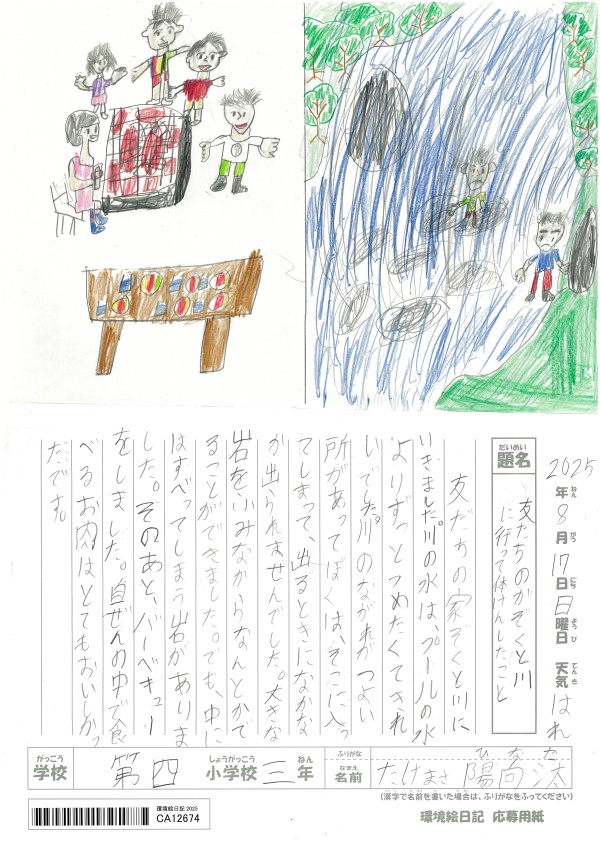 2025年8月17日日曜日 天気 はれ
ねん がつ にち ようび てんき
だいめい
題名
友だちのかぞくと川
に行って体けんしたこと
友だちの家ぞくと川に
いきました。川の水は、プールの水
よりずっとつめたくてきれ
いでした。川のながれがつよい
所があってぼくは、そこに入っ
てしまって、出るときになかな
か出られませんでした。大きな
岩をふみながらなんとかで
ることができました。でも、中に
はすべってしまう岩がありま
した。そのあと、バーベキュー
をしました。自ぜんの中で食
べるお肉はとてもおいしかっ
たです。
がっこう
学校
第四
しょうがっこう
小学校
三
ねん
年
ふりがな
ひなた
なまえ
名前
たけまさ 陽向汰
(漢字で名前を書いた場合は、ふりがなをふってください)
環境絵日記 応募用紙
環境絵日記 2025
CA12674